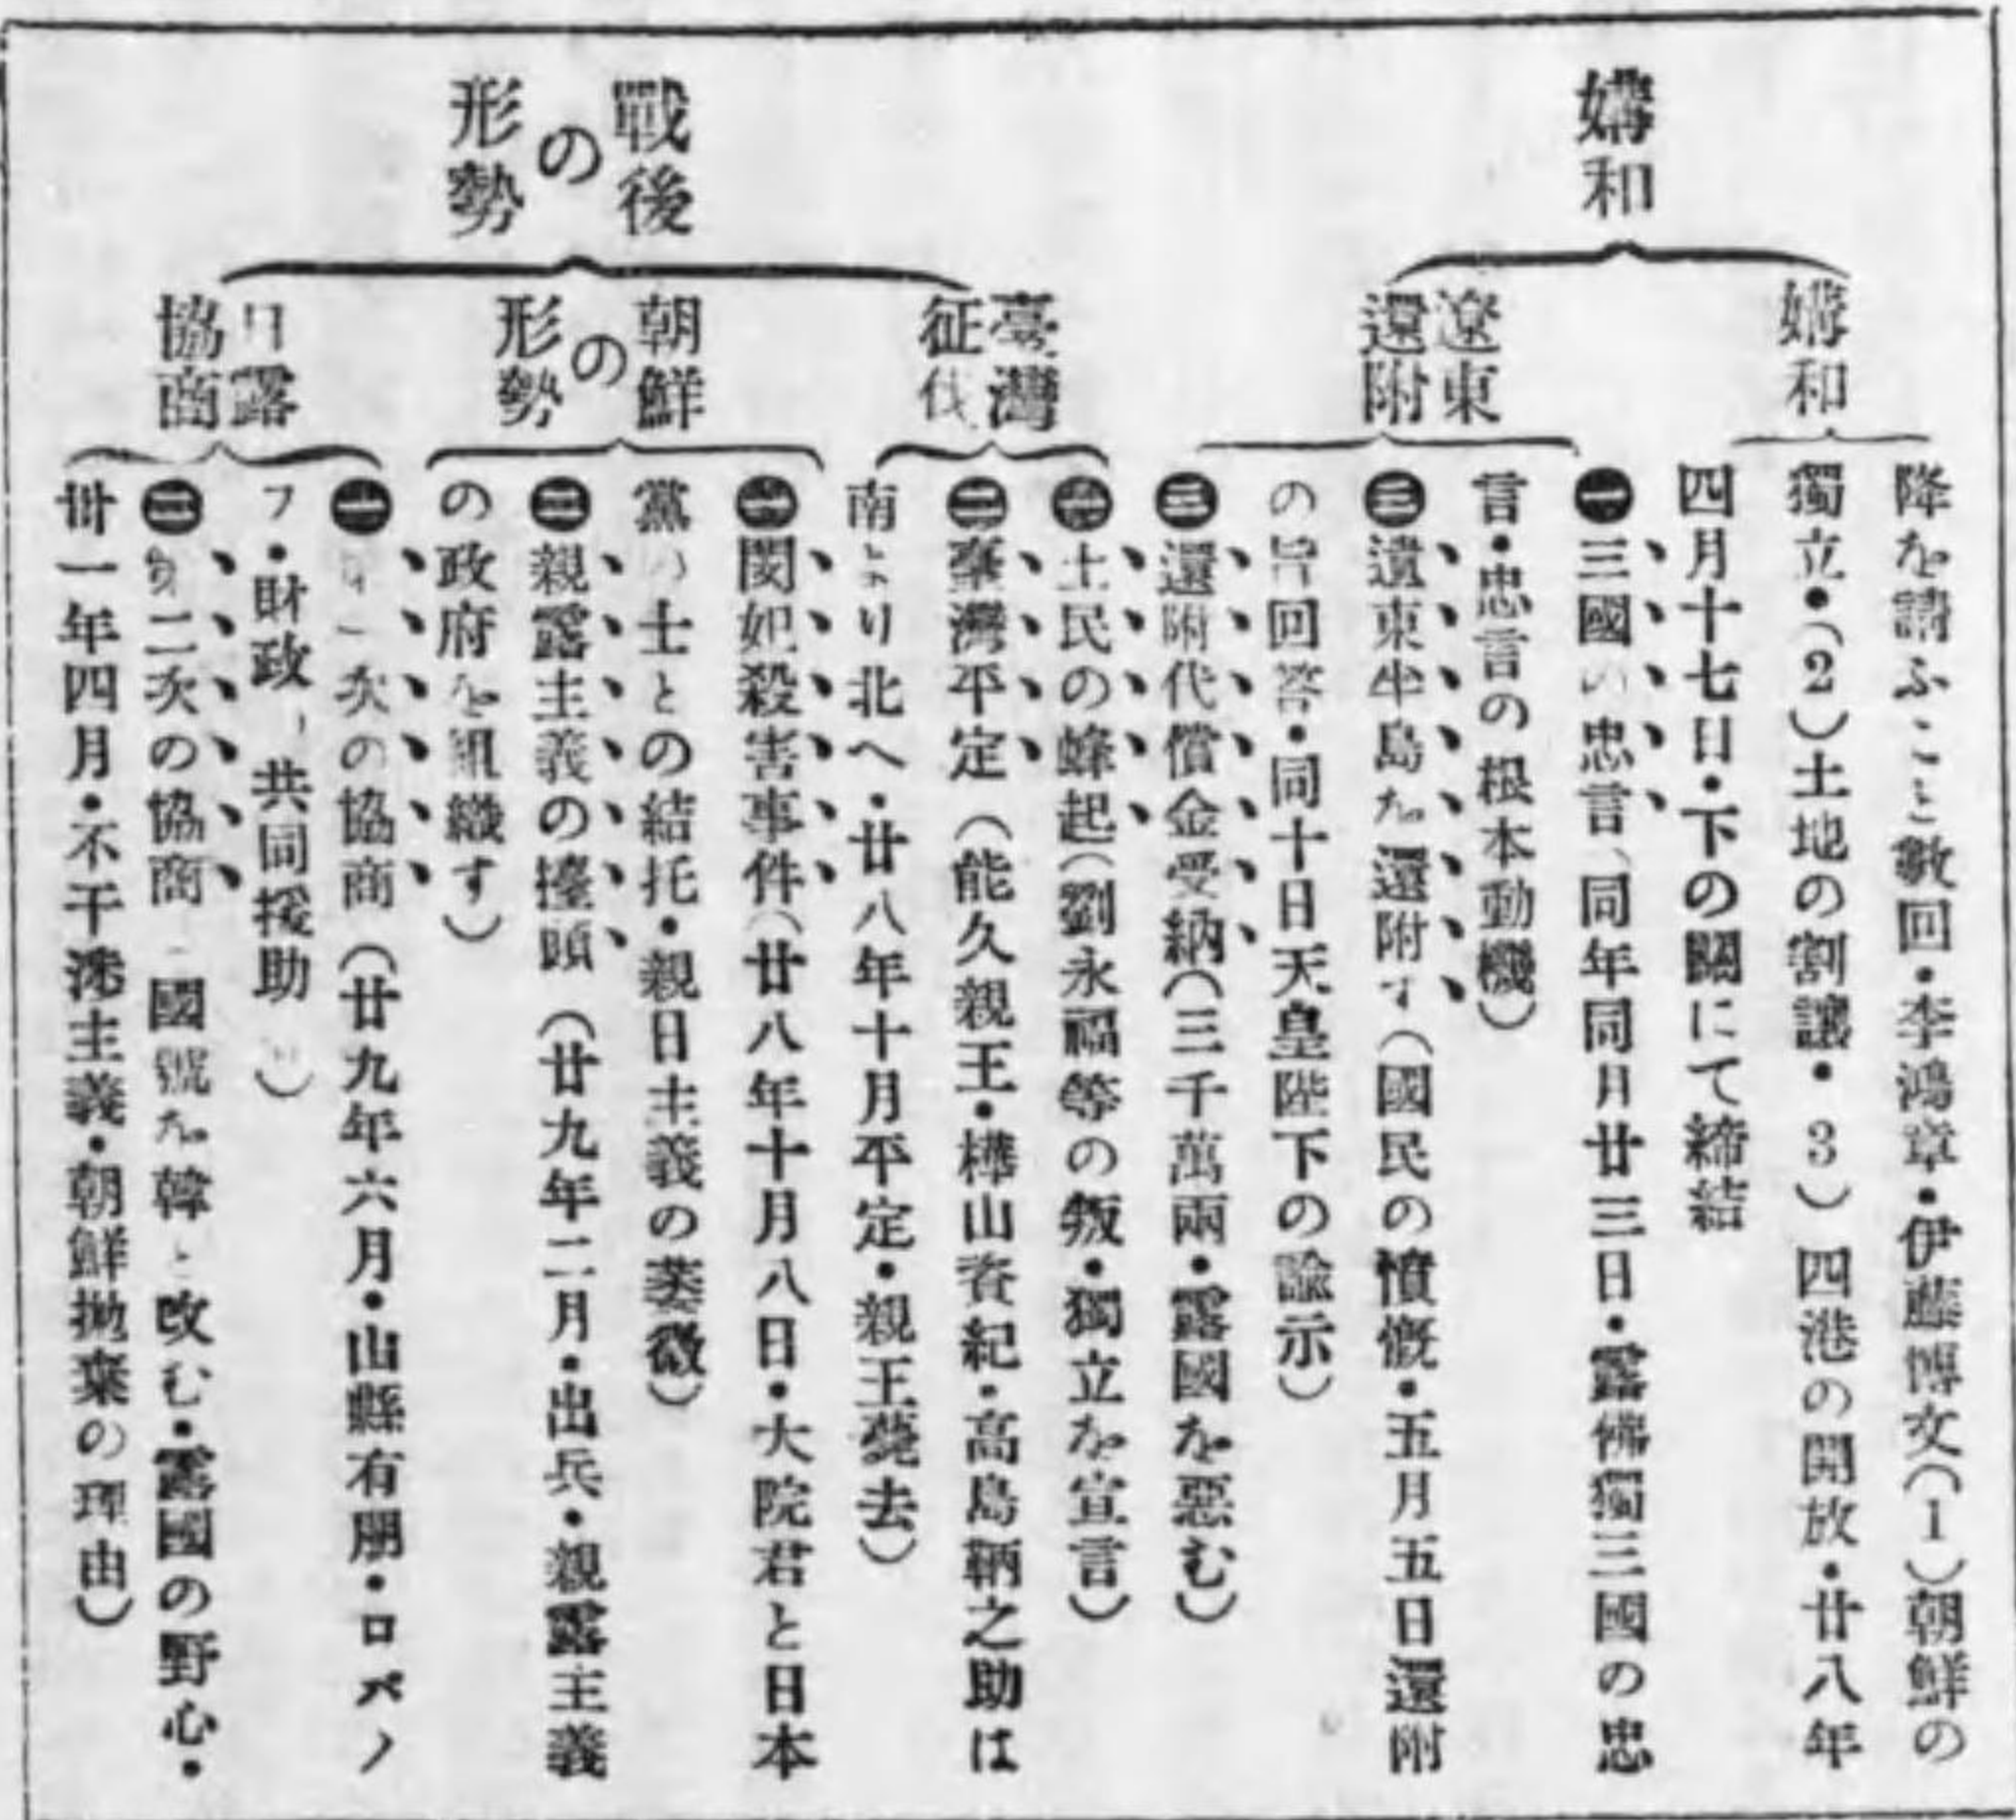 媾和
媾和
降を請ふこと數回・李鴻章・伊藤博文(1)朝鮮の
獨立・(2)土地の割讓・3)四港の開放・廿八年
四月十七日・下の關にて締結
遼東
還附
㊀三國の忠言、同年同月廿三日・露佛獨三國の忠
言・忠言の根本動機)
㊁遼東半島を還附す(國民の憤慨・五月五日還附
の旨回答・同十日天皇陛下の諭示)
㊂還附代償金受納(三千萬兩・露國を惡む)
戰後
の
形勢
臺灣
征伐
㊀土民の蜂起(劉永福等の叛・獨立を宣言)
㊁臺灣平定(能久親王・樺山資紀・高島鞆之助は
南より北へ・廿八年十月平定・親王薨去)
朝鮮
の
形勢
㊀閔妃殺害事件(廿八年十月八日・大院君と日本
黨の士との結托・親日主義の萎微)
㊁親露主義の擡頭(廿九年二月・出兵・親露主義
の政府を組織す)
日露
協商
㊀第一次の協商(廿九年六月・山縣有朋・ロバノ
フ・財政 共同援助)
㊁第二次の協商 國號を韓と改む・露國の野心・
卅一年四月・不干涉主義・朝鮮拋棄の理由)